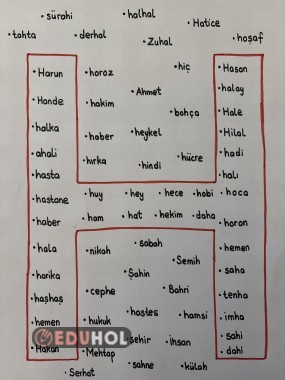 • sürahi • halhal • Hatice
• tahta • derhal • Zuhal • hoşaf
• Harun • horoz • hiç • Hasan
• Hande • hakim • Ahmet • halay
• halka • haber • heykel • bahça • Hale
• ahali • hırka • hindi • hücre • Hilal
• hasta • hadi
• halı
• hastane • huy • hey • hece • hobi • hoca
• haber • ham • hat • hekim • daha • horon
• hala • nikah • sabah • Semih • hemen
• harika • cephe • Şahin • Bahri • saha
• haşhaş • hukuk • hostes • hamsi • tenha
• hemen • şehir • İhsan • imha
• Hakan • Mehtap • sahne • külah • sahi
• Serhat • dahi
EDUHOL